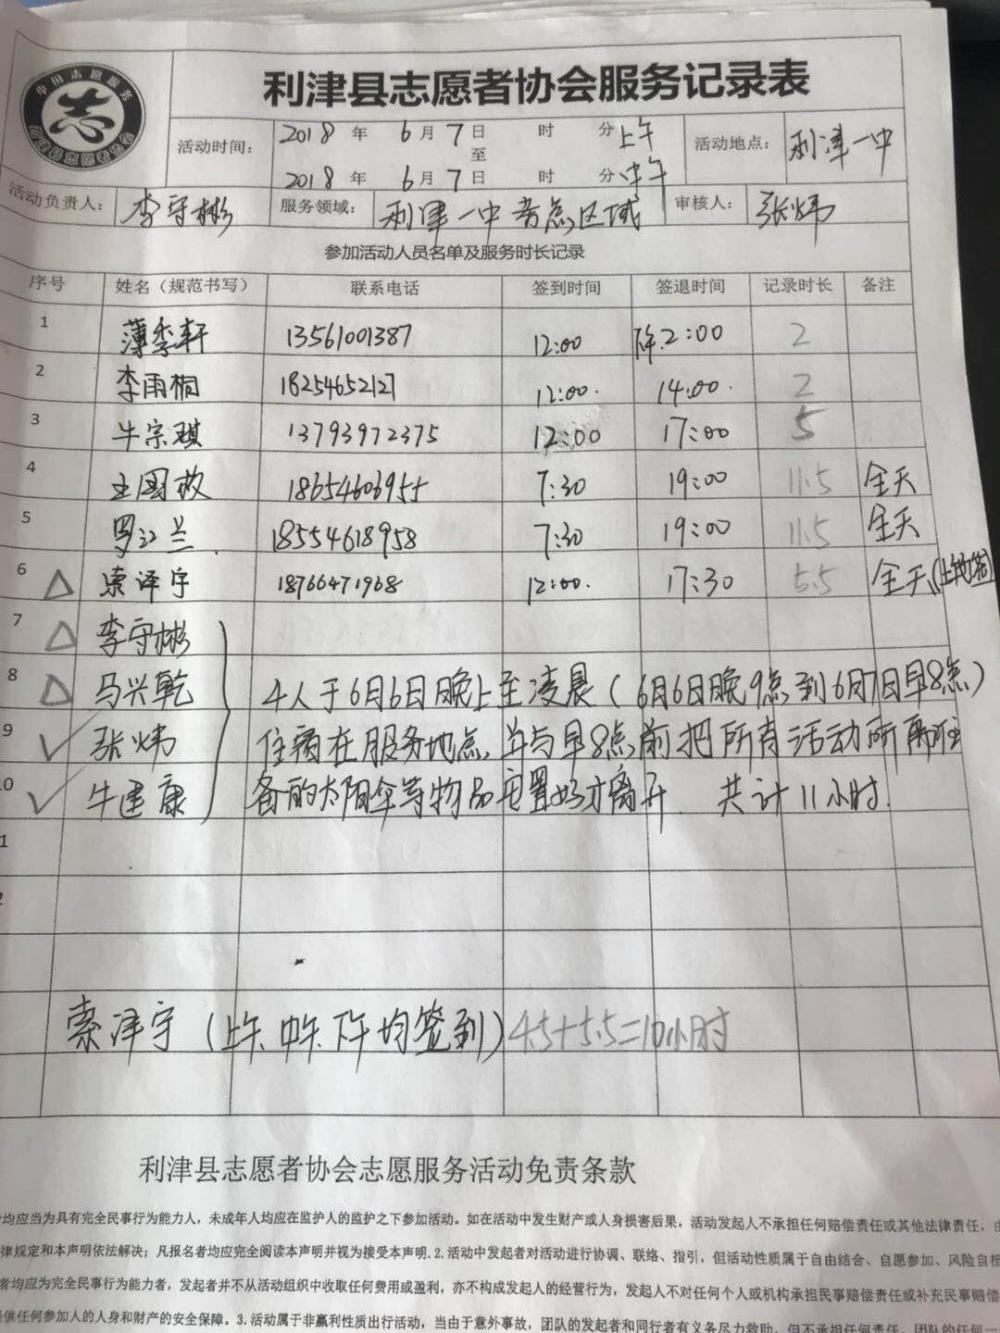 利津县志愿者协会服务记录表
活动时间: 2018 年 6 月 7 日 时 分 上午
至
2018 年 6 月 7 日 时 分 中午
活动地点: 利津一中
活动负责人: 李守彬 服务领域: 利津一中考点区域 审核人: 张炜
参加活动人员名单及服务时长记录
序号 姓名（规范书写） 联系电话 签到时间 签退时间 记录时长 备注
1 薄季轩 13561001387 12:00 2:00 2
2 李雨桐 18254652127 12:00. 14:00. 2
3 牛宗琪 13793972375 12:00 17:00 5
4 18654606955 7:30 19:00 11.5 全天
5 罗江兰 18554618958 7:30 19:00 11.5 全天
6 △ 索泽宇 18766471968 12:00. 17:30 5.5 全天
7 △ 李守彬
8 △ 马兴乾 4人于6月6日晚上至凌晨（6月6日晚9点到6月7日早8点）
9 ✓ 张炜 在服务地点,并与早8点前把所有活动所
10 ✓ 牛建康 备的太阳伞等物品安置好才离开. 共计11小时.
1
2
索泽宇（上午.中午.下午均签到）4.5+5.5=10小时
利津县志愿者协会志愿服务活动免责条款
均应当为具有完全民事行为能力人，未成年人均应在监护人的监护之下参加活动。如在活动中发生财产或人身损害后果，活动发起人不承担任何赔偿责任或其他法律责任，
律规定和本声明依法解决；凡报名者均应完全阅读本声明并视为接受本声明. 2. 活动中发起者对活动进行协调、联络、指引，但活动性质属于自由结合、自愿参加、风险自担
者均应为完全民事行为能力者，发起者并不从活动组织中收取任何费用或盈利，亦不构成发起人的经营行为，发起人不对任何个人或机构承担民事赔偿责任或补充民事赔偿
供任何参加人的人身和财产的安全保障。3. 活动属于非赢利性质出行活动，当由于意外事故，团队的发起者和同行者有义务尽力救助，但不承担任何责任，团队的任何一